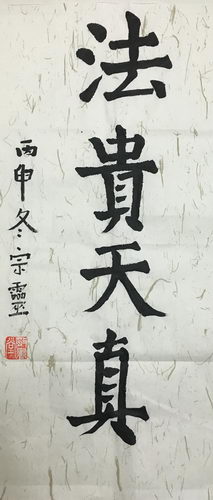 法貴天真
丙申冬宗靈